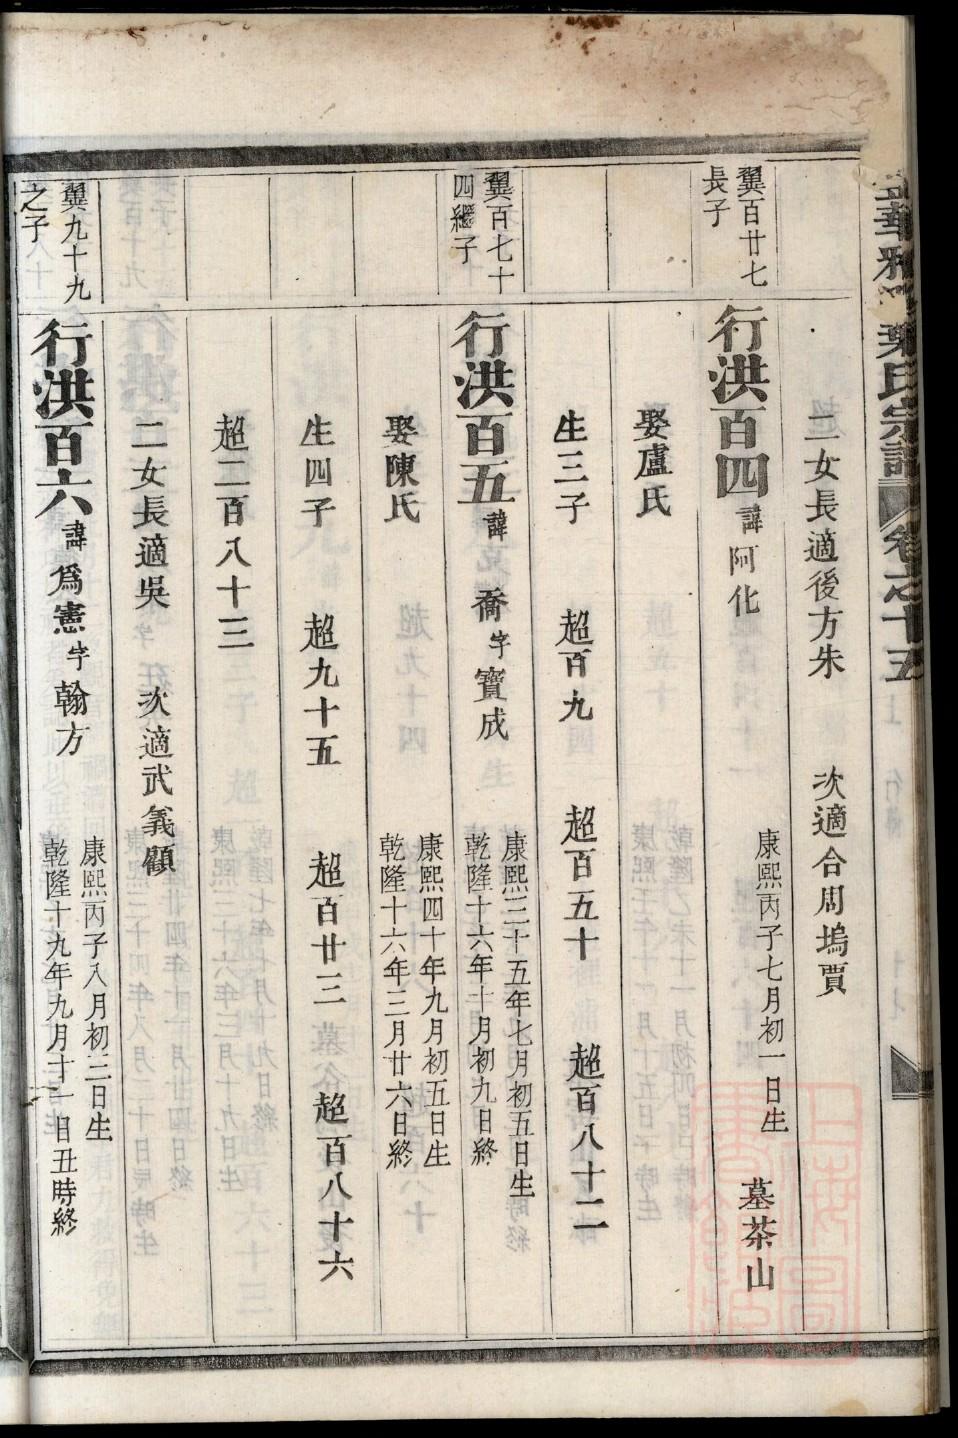 華 葉氏宗譜 卷之十五
二女長適後方朱 次適合周塢賈
翼百廿七
長子
行洪百四 諱阿化 康熙丙子七月初一日生 墓茶山
娶盧氏
生三子 超百九 超百五十 超百八十二
翼百七十
四繼子
行洪百五 諱喬 字寶成 康熙三十五年七月初五日生
乾隆十六年十月初九日終
娶陳氏 康熙四十年九月初五日生
乾隆十六年三月廿六日終
生四子 超九十五 超百廿三 超百八十六
超二百八十三
二女長適吳 次適武義顧
翼九十九
之子
行洪百六 諱爲憲 字翰方 康熙丙子八月初三日生
乾隆十九年九月十一日丑時終